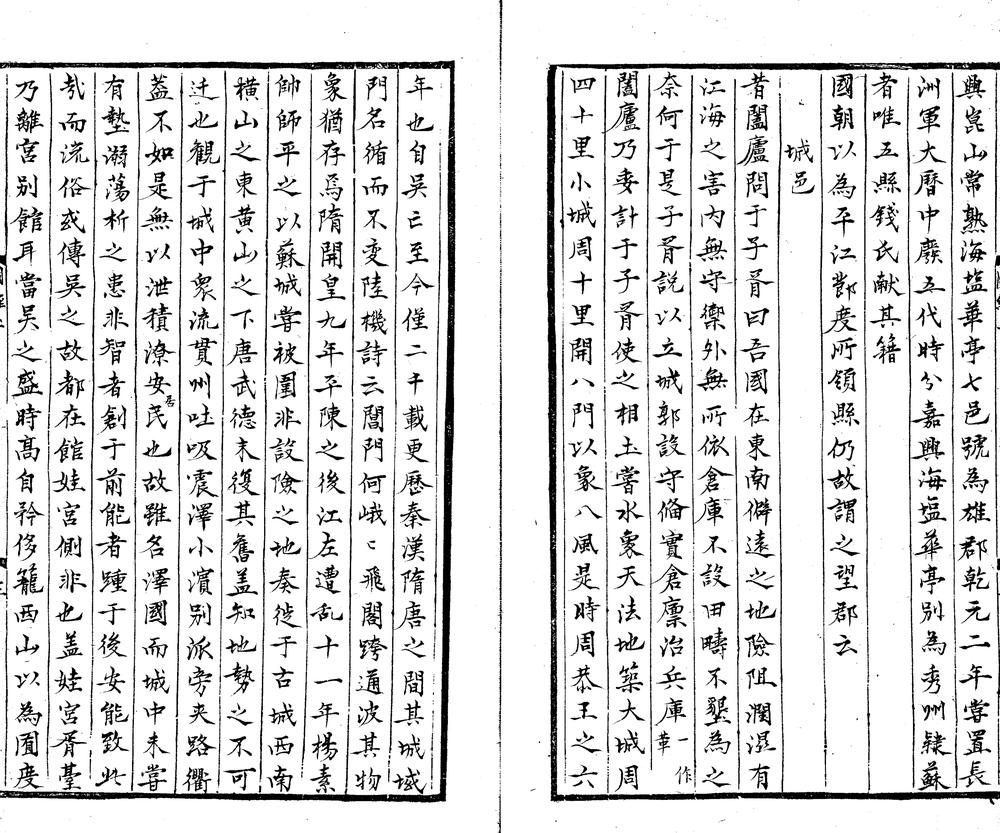 興崑山常熟海塩華亭七邑號為雄郡乾元二年甞置長
洲軍大曆中廢五代時分嘉興海塩華亭别為秀州隸蘇
者唯五縣錢氏献其籍
國朝以為平江節度所領縣仍故謂之望郡云
城邑
昔闔廬問于子胥曰吾國在東南僻遠之地險阻潤濕有
江海之害内無守禦外無所依倉庫不設田疇不墾為之
奈何于是子胥説以立城郭設守俻實倉廪治兵庫一作革
闔廬乃委計于子胥使之相土嘗水象天法地築大城周
四十里小城周十里開八門以象八風是時周恭王之六
年也自吴亡至今僅二千載更歴秦漢隋唐之間其城域
門名循而不变陸機詩云閶門何峨〻飛閣跨通波其物
象猶存焉隋開皇九年平陳之後江左遭乱十一年楊素
帥師平之以蘇城甞被圍非設險之地奏徙于古城西南
横山之東黄山之下唐武德末復其舊盖知地勢之不可
迁也観于城中衆流貫州吐吸震澤小濵别派旁夹路衢
葢不如是無以泄積潦安居民也故雖名澤國而城中未甞
有墊溺蕩析之患非智者創于前能者踵于後安能致此
㢤而流俗或傳吴之故都在館娃宫側非也盖娃宫胥臺
乃離宫别館耳當吴之盛時髙自矜侈籠西山以為囿度